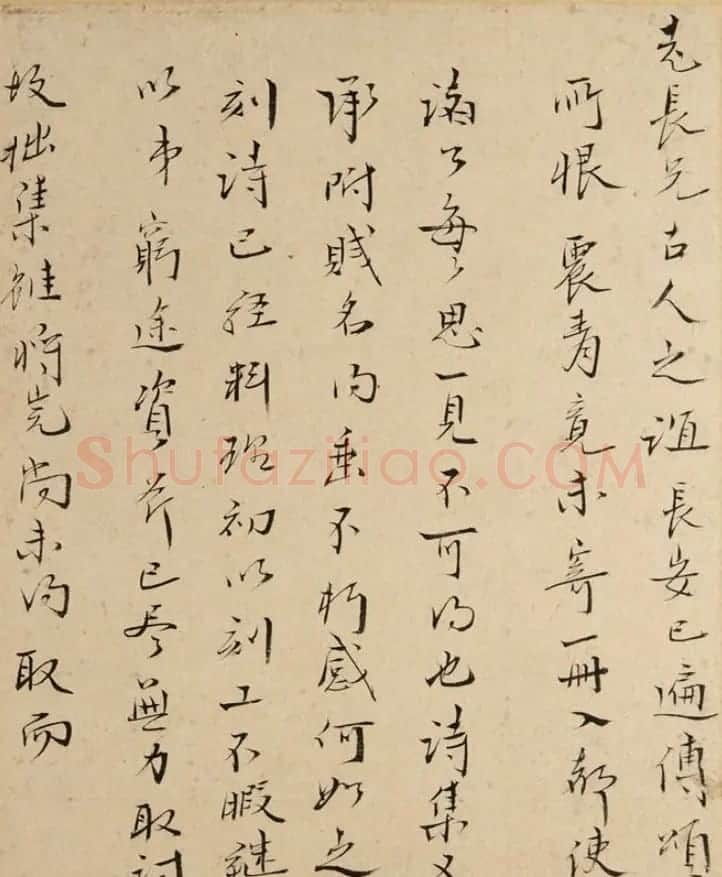 老長兄古人之誼長安已遍傳頌
所恨震青竟未寄一冊入都使
滿了每每思一見不可得也詩集又
承附賤名得垂不朽感何如之
刻詩已經料理初以刻工不暇繼
以弟窮途資斧已尽無力取討
故拙集雖將完尚未得取而
Shufaziliao.COM